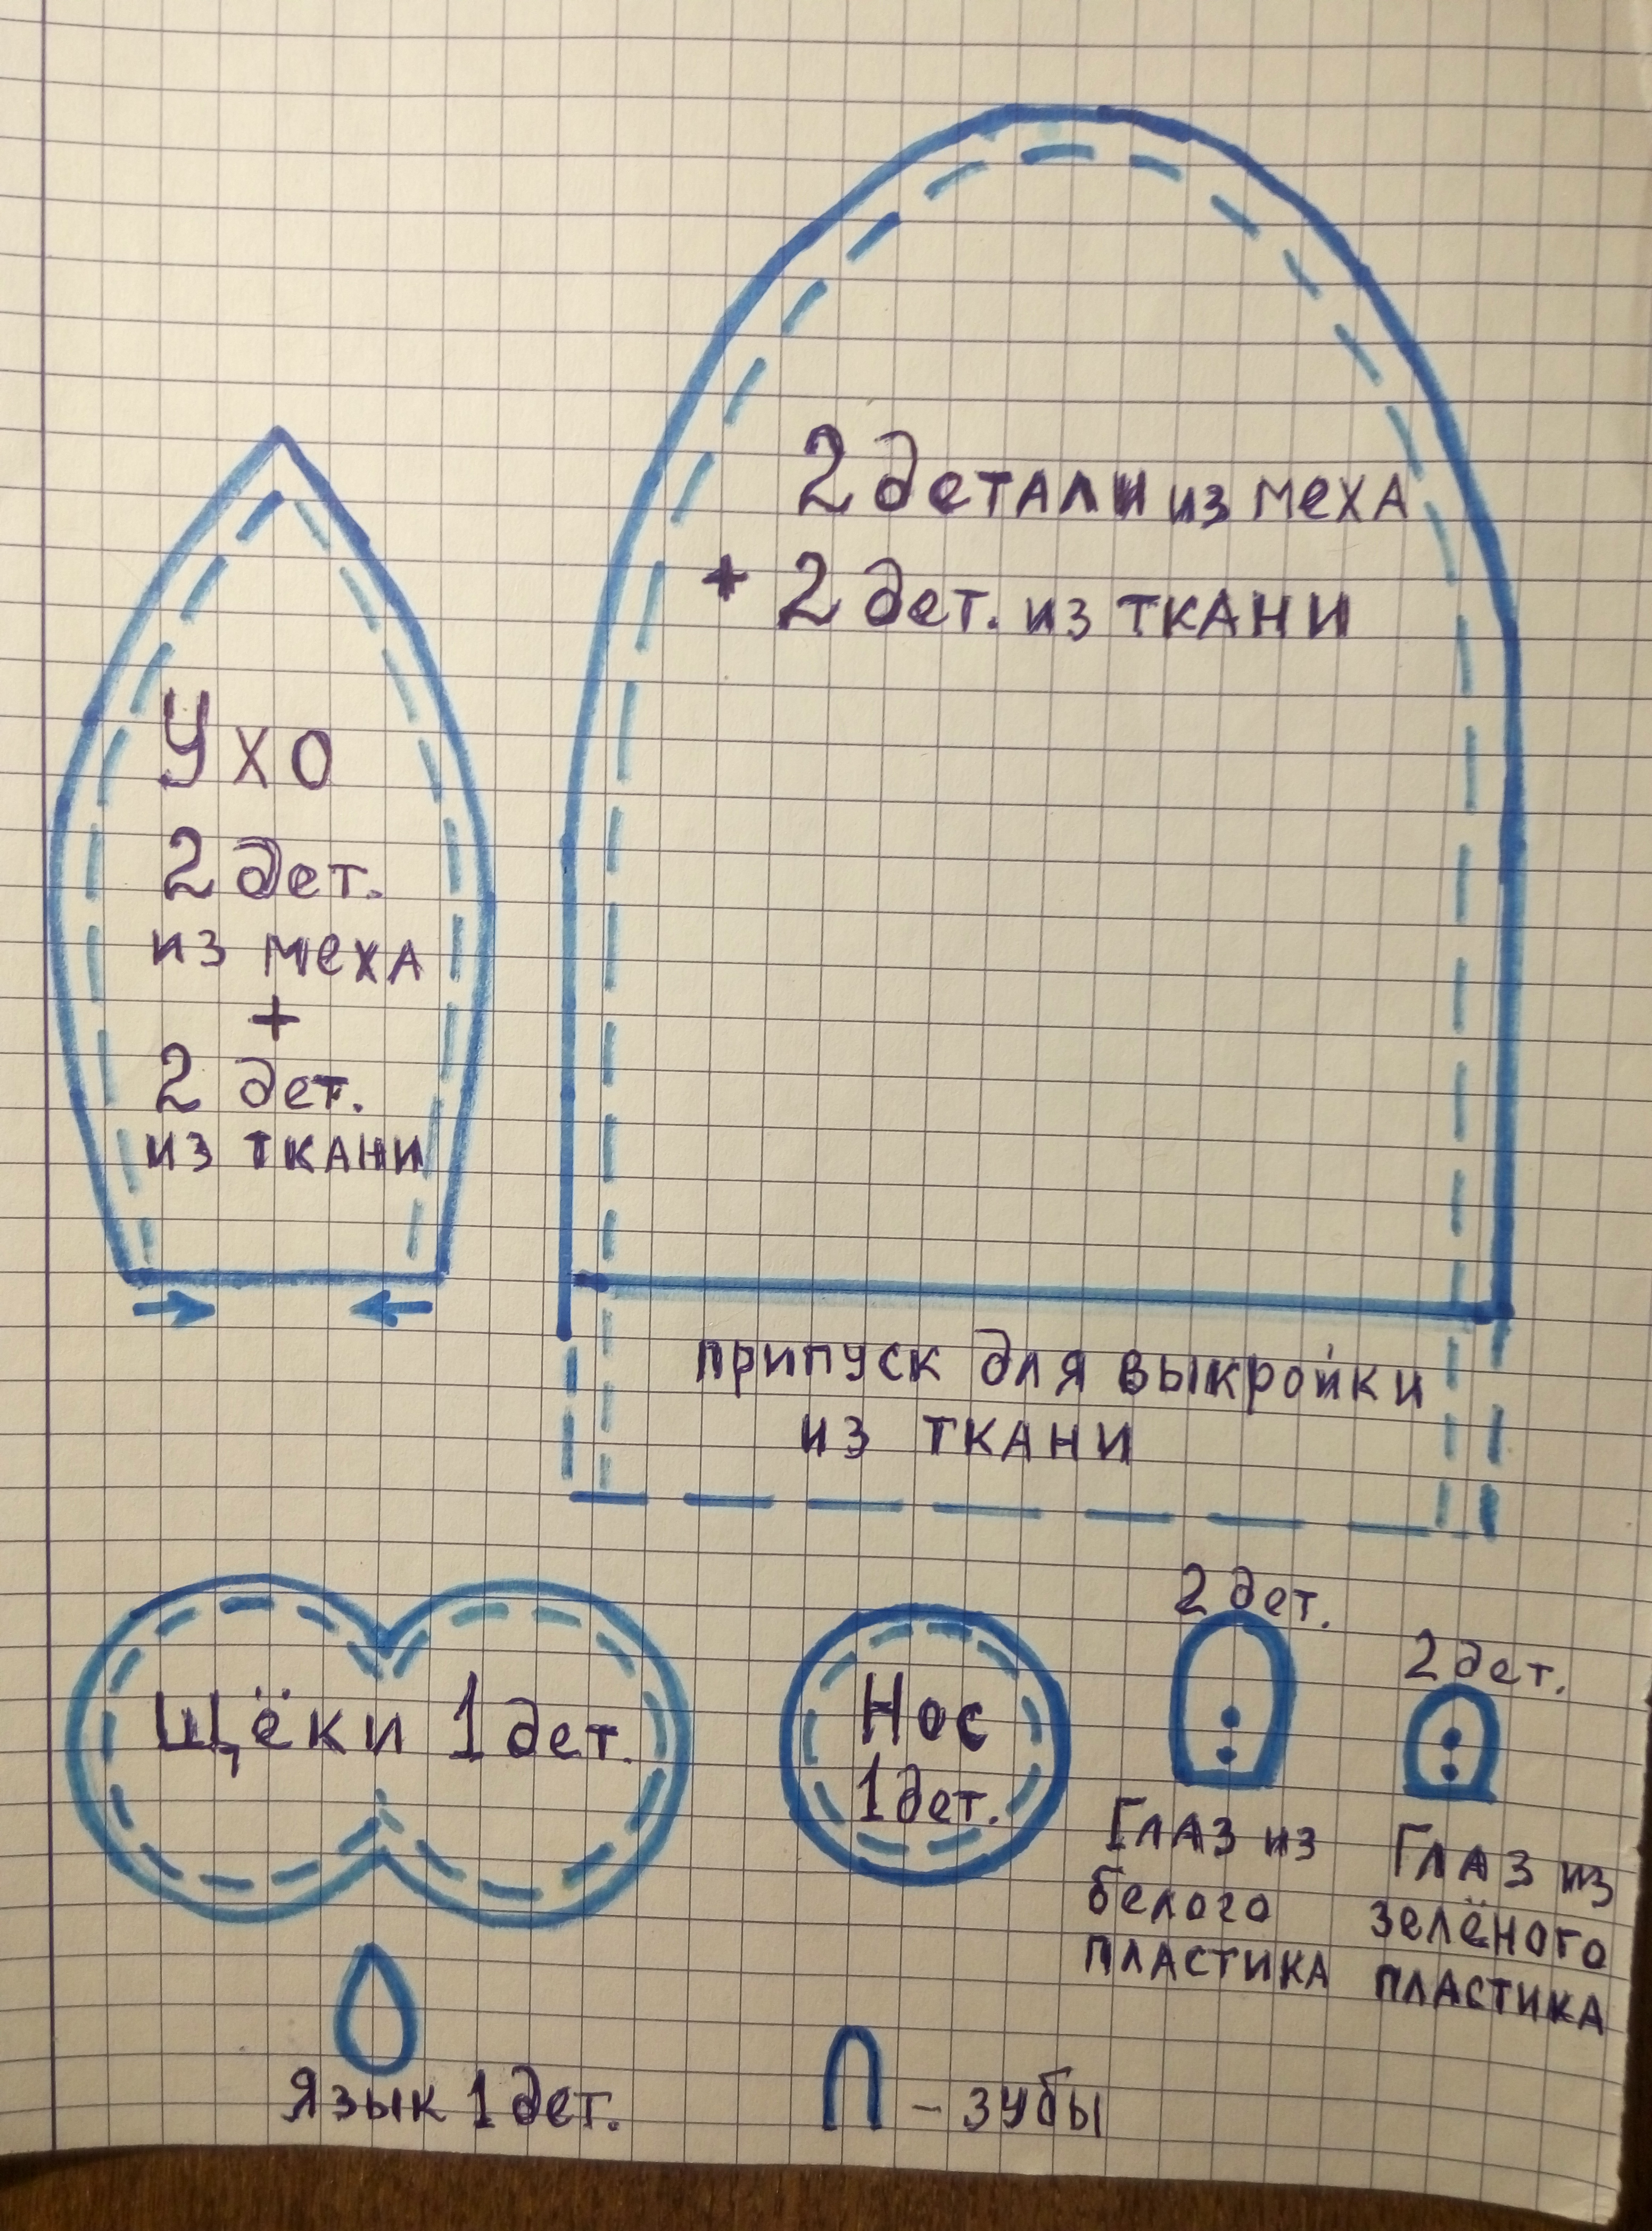 2 детали из меха
+ 2 дет. из ткани
Ухо
2 дет.
из меха
+
2 дет.
из ткани
припуск для выкройки
из ткани
Щёки 1 дет.
Нос
1 дет.
2 дет.
Глаз из
белого
пластика
2 дет.
Глаз из
зелёного
пластика
Язык 1 дет.
– зубы